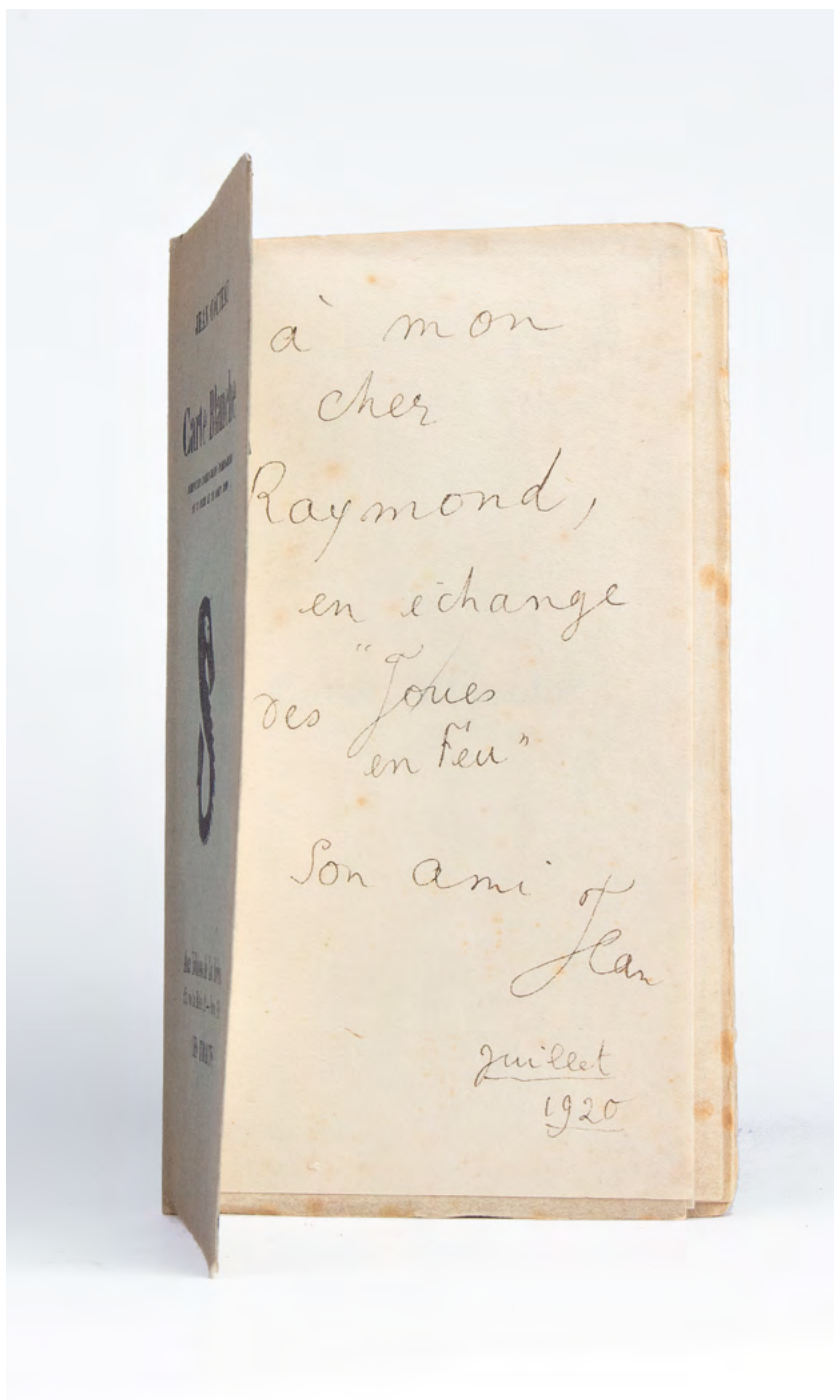 JEAN COCTEAU
Carte Blanche
à mon
cher
Raymond,
en échange
des "Joues
en Feu"
Son ami
Jean
juillet
1920